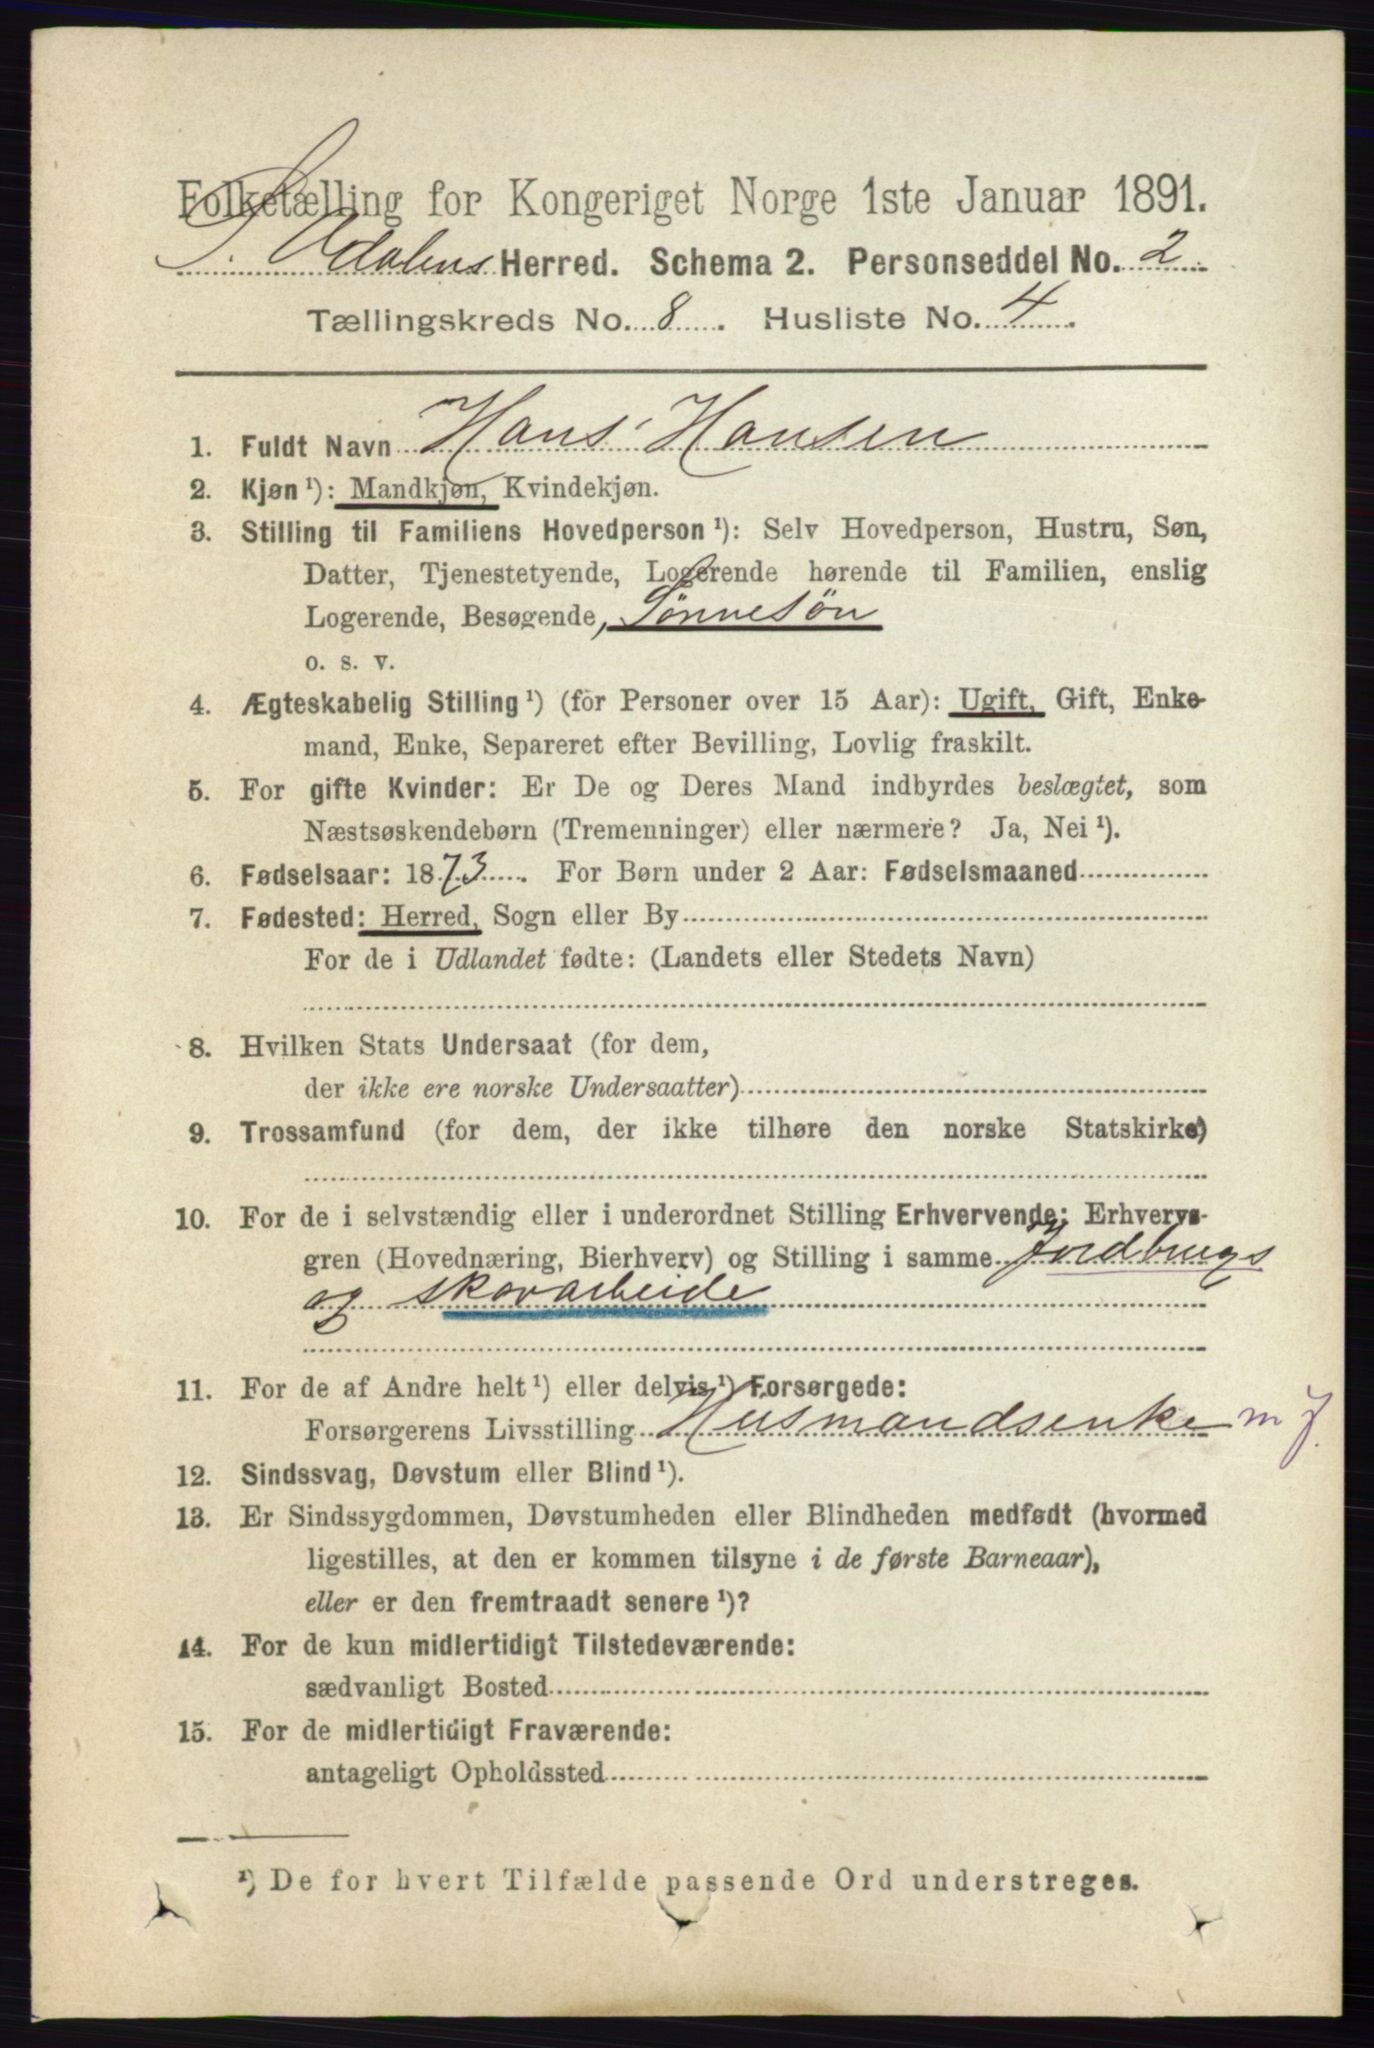 Folketælling for Kongeriget Norge 1ste Januar 1891.
S. Odalens Herred. Schema 2. Personseddel No. 2
Tællingskreds No. 8. Husliste No. 4.
1. Fuldt Navn Hans Hansen
2. Kjøn ¹): Mandkjøn, Kvindekjøn.
3. Stilling til Familiens Hovedperson ¹): Selv Hovedperson, Hustru, Søn,
Datter, Tjenestetyende, Logerende hørende til Familien, enslig
Logerende, Besøgende, Sønnesøn
o. s. v.
4. Ægteskabelig Stilling ¹) (for Personer over 15 Aar): Ugift, Gift, Enke-
mand, Enke, Separeret efter Bevilling, Lovlig fraskilt.
5. For gifte Kvinder: Er De og Deres Mand indbyrdes beslægtet, som
Næstsøskendebørn (Tremenninger) eller nærmere? Ja, Nei ¹).
6. Fødselsaar: 1873. For Børn under 2 Aar: Fødselsmaaned
7. Fødested: Herred, Sogn eller By
For de i Udlandet fødte: (Landets eller Stedets Navn)
8. Hvilken Stats Undersaat (for dem,
der ikke ere norske Undersaatter)
9. Trossamfund (for dem, der ikke tilhøre den norske Statskirke)
10. For de i selvstændig eller i underordnet Stilling Erhvervende: Erhvervs-
gren (Hovednæring, Bierhverv) og Stilling i samme Jordbrugs
og skovarbeide
11. For de af Andre helt ¹) eller delvis ¹) Forsørgede:
Forsørgerens Livsstilling Husmandsenke m J.
12. Sindssvag, Døvstum eller Blind ¹).
13. Er Sindssygdommen, Døvstumheden eller Blindheden medfødt (hvormed
ligestilles, at den er kommen tilsyne i de første Barneaar),
eller er den fremtraadt senere ¹)?
14. For de kun midlertidigt Tilstedeværende:
sædvanligt Bosted
15. For de midlertidigt Fraværende:
antageligt Opholdssted
¹) De for hvert Tilfælde passende Ord understreges.